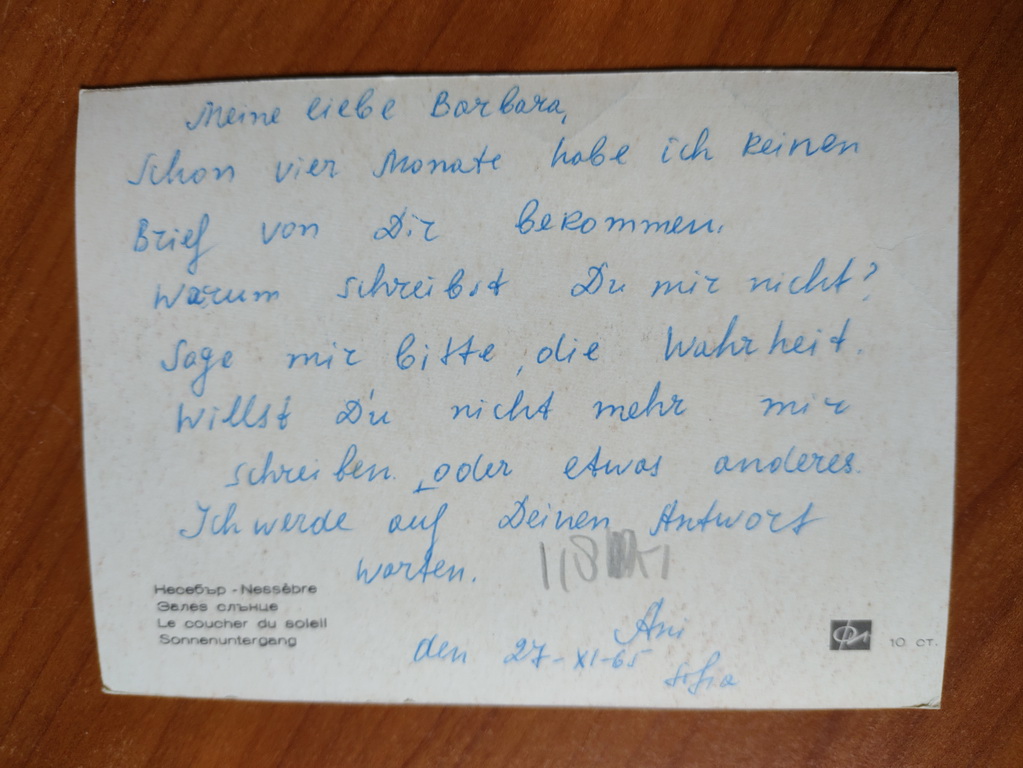 Meine liebe Barbara,
Schon vier Monate habe ich keinen
Brief von Dir bekommen.
Warum schreibst Du mir nicht?
Sage mir bitte, die Wahrheit.
Willst Du nicht mehr mir
schreiben oder etwas anderes.
Ich werde auf Deinen Antwort
warten.
118
Несебър - Nessèbre
Залез слънце
Le coucher du soleil
Sonnenuntergang
Ani
den 27-XI-65
Sofia
10 ст.